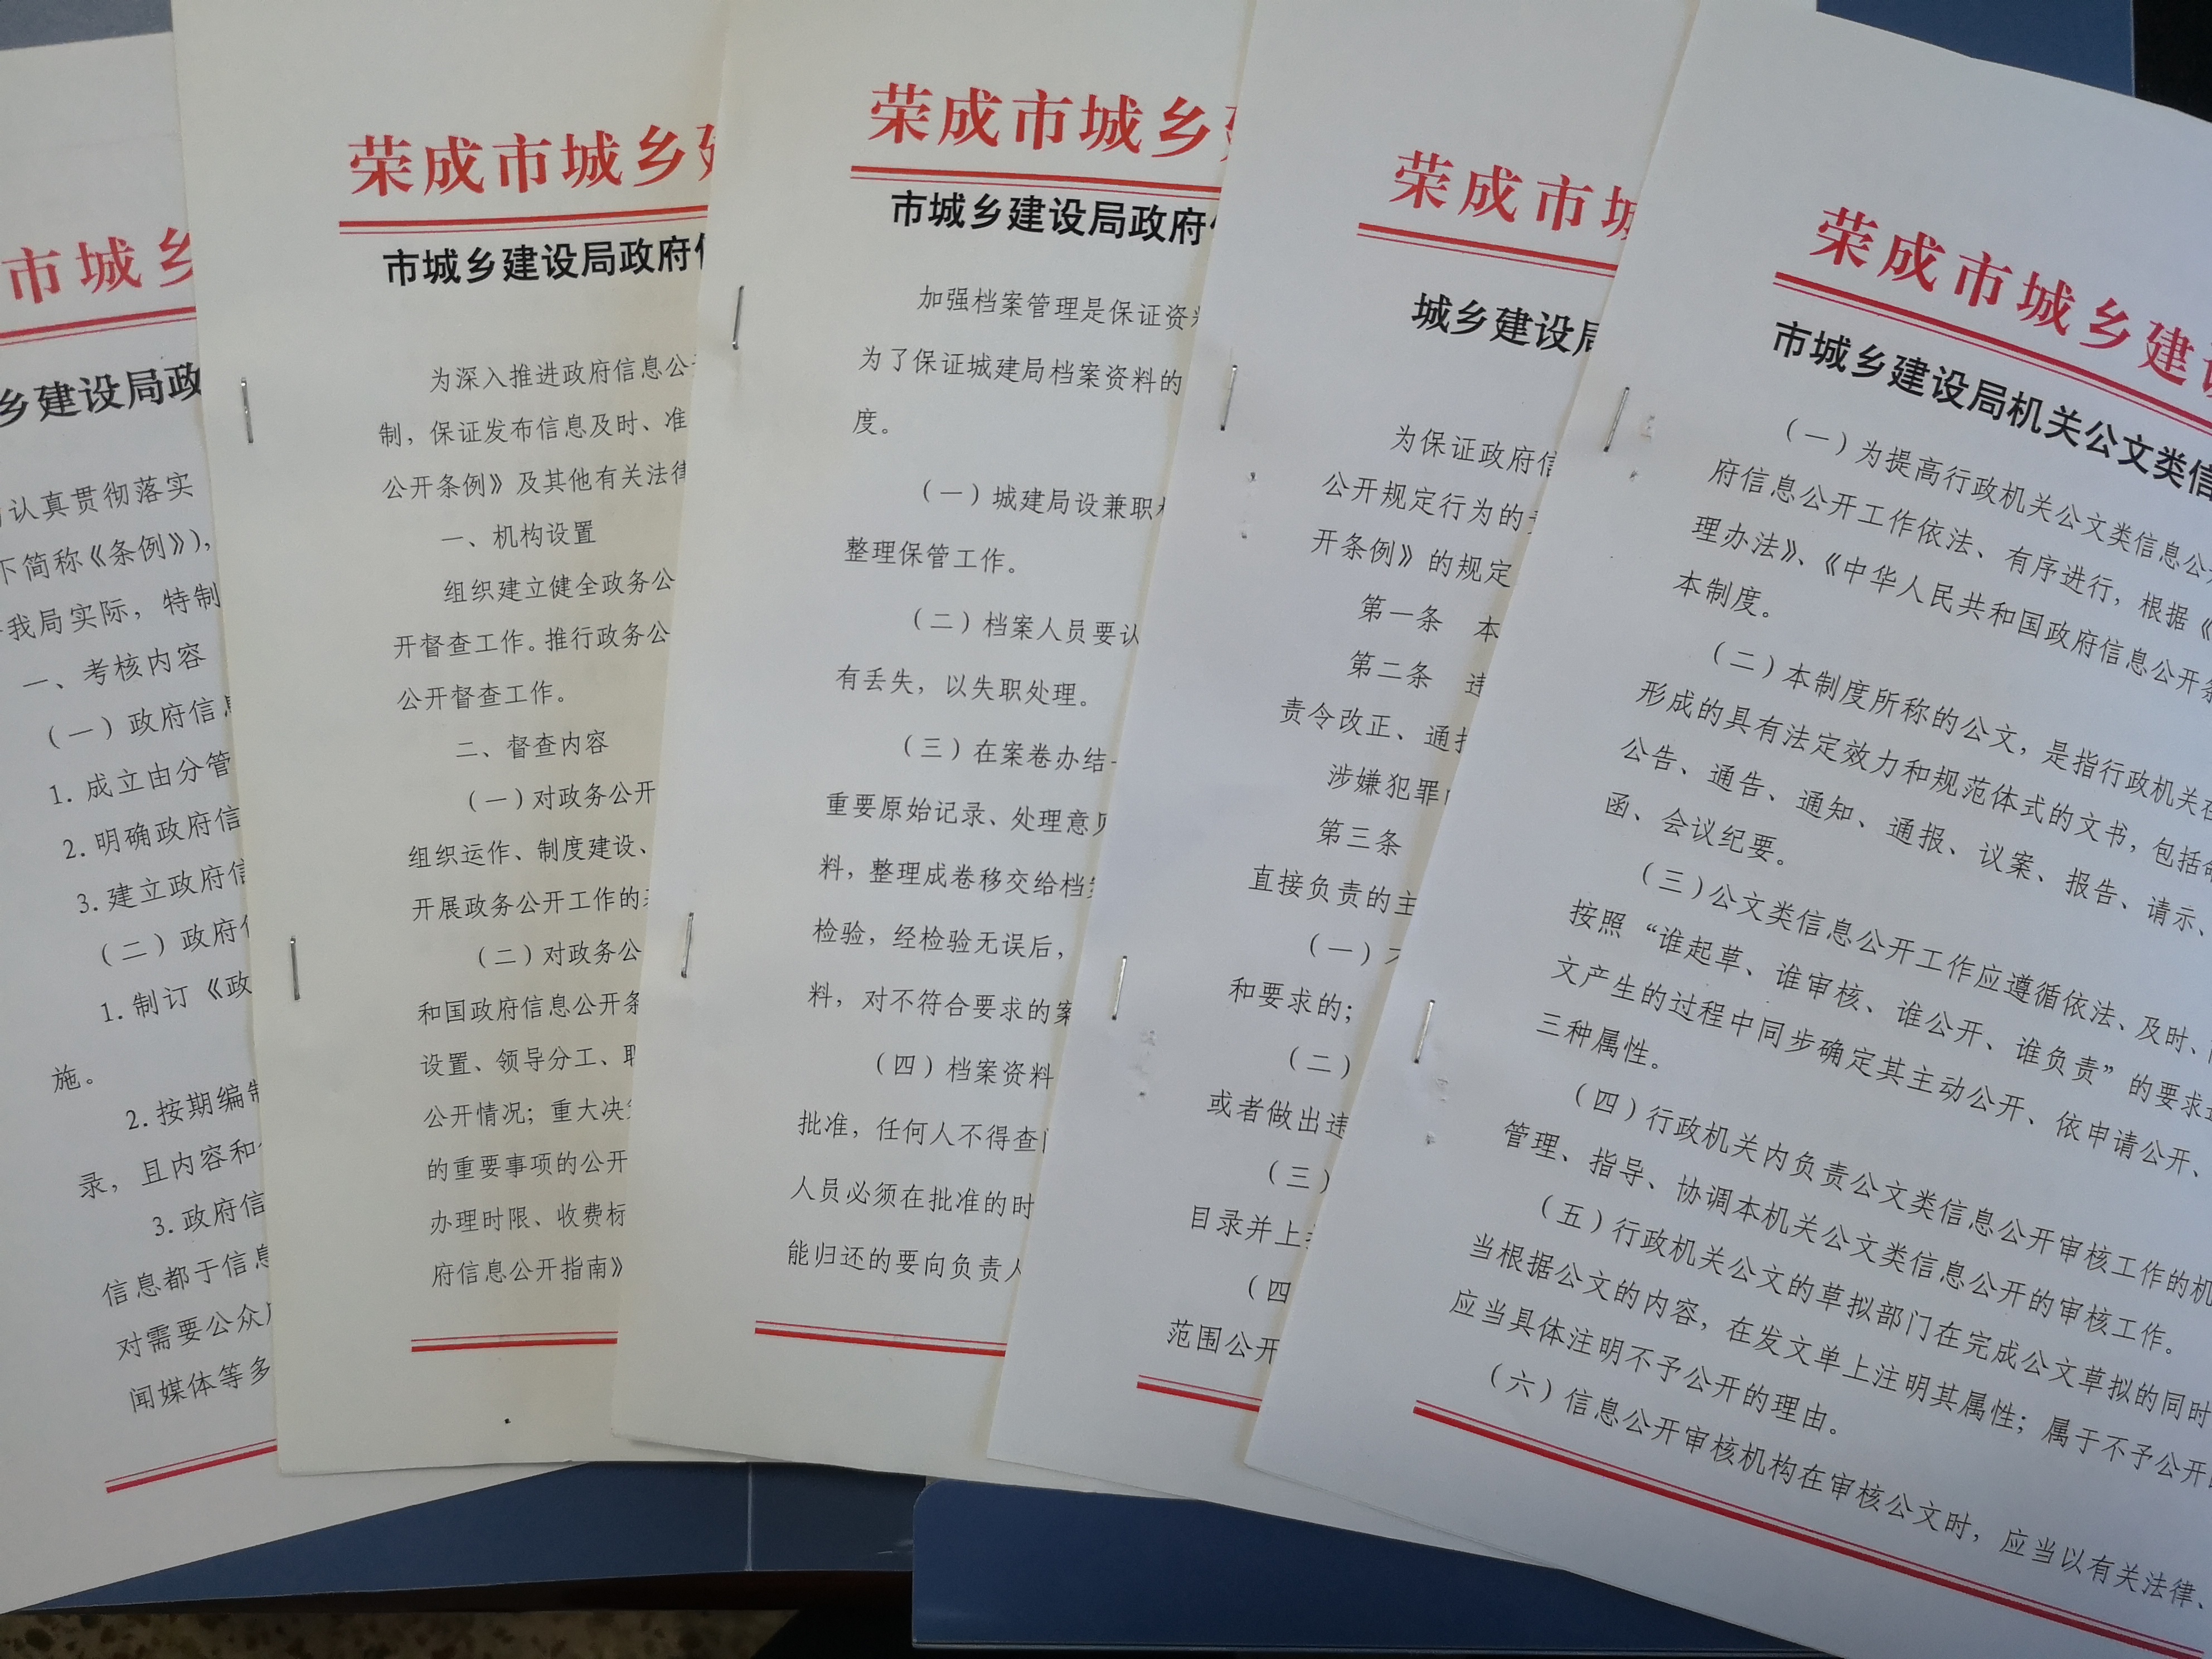 市城乡
乡建设局政
认真贯彻落实
下简称《条例》），
我局实际，特制
一、考核内容
（一）政府信息
1.成立由分管
2.明确政府信
3.建立政府信
（二）政府信
1.制订《政
施。
2.按期编制
录，且内容和
3.政府信
信息都于信息
对需要公众
闻媒体等多
荣成市城乡建
市城乡建设局政府信
为深入推进政府信息公开
制，保证发布信息及时、准
公开条例》及其他有关法律
一、机构设置
组织建立健全政务公
开督查工作。推行政务公
公开督查工作。
二、督查内容
（一）对政务公开
组织运作、制度建设、
开展政务公开工作的
（二）对政务公
和国政府信息公开条
设置、领导分工、职
公开情况；重大决
的重要事项的公开
办理时限、收费标
府信息公开指南》
荣成市城乡建
市城乡建设局政府信
加强档案管理是保证资料
为了保证城建局档案资料的
度。
（一）城建局设兼职
整理保管工作。
（二）档案人员要认
有丢失，以失职处理。
（三）在案卷办结
重要原始记录、处理意见
料，整理成卷移交给档
检验，经检验无误后，
料，对不符合要求的案
（四）档案资料
批准，任何人不得查
人员必须在批准的时
能归还的要向负责人
荣成市城
城乡建设局
为保证政府信
公开规定行为的
开条例》的规定
第一条 本
第二条 违
责令改正、通报
涉嫌犯罪
第三条
直接负责的主
（一）不
和要求的；
（二）
或者做出违
（三）
目录并上
（四
范围公开
荣成市城乡建设
市城乡建设局机关公文类信
（一）为提高行政机关公文类信息公开
府信息公开工作依法、有序进行，根据《
理办法》、《中华人民共和国政府信息公开条
本制度。
（二）本制度所称的公文，是指行政机关在
形成的具有法定效力和规范体式的文书，包括命
公告、通告、通知、通报、议案、报告、请示、
函、会议纪要。
（三）公文类信息公开工作应遵循依法、及时、
按照“谁起草、谁审核、谁公开、谁负责”的要求
文产生的过程中同步确定其主动公开、依申请公开、
三种属性。
（四）行政机关内负责公文类信息公开审核工作的机
管理、指导、协调本机关公文类信息公开的审核工作。
（五）行政机关公文的草拟部门在完成公文草拟的同时
当根据公文的内容，在发文单上注明其属性；属于不予公开
应当具体注明不予公开的理由。
（六）信息公开审核机构在审核公文时，应当以有关法律、